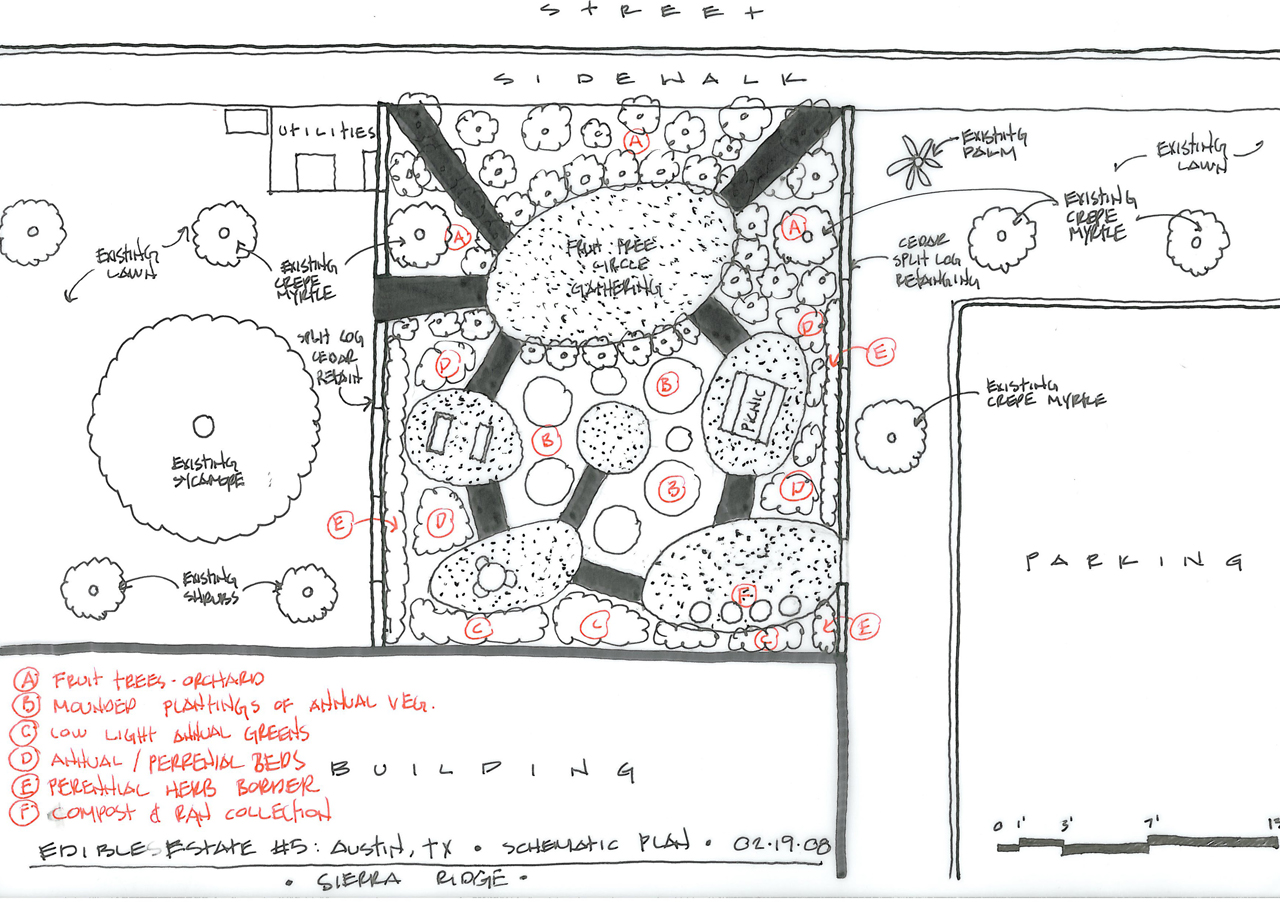 STREET
SIDEWALK
UTILITIES
A
EXISTING
PALM
EXISTING
LAWN
EXISTING
CREPE
MYRTLE
A
A
FRUIT TREE
CIRCLE
GATHERING
CEDAR
SPLIT LOG
RETAINING
EXISTING
LAWN
EXISTING
CREPE
MYRTLE
SPLIT LOG
CEDAR
RETAIN
D
D
E
B
EXISTING
CREPE MYRTLE
PICNIC
B
EXISTING
SYCAMORE
B
D
D
E
PARKING
EXISTING
SHRUBS
F
C
C
C
E
A FRUIT TREES - ORCHARD
B MOUNDED PLANTINGS OF ANNUAL VEG.
C LOW LIGHT ANNUAL GREENS
D ANNUAL / PERRENIAL BEDS
E PERENNIAL HERB BORDER
F COMPOST & RAIN COLLECTION
BUILDING
0 1' 3' 7' 15
EDIBLE ESTATE #5: AUSTIN, TX • SCHEMATIC PLAN • 02.19.08
• SIERRA RIDGE •